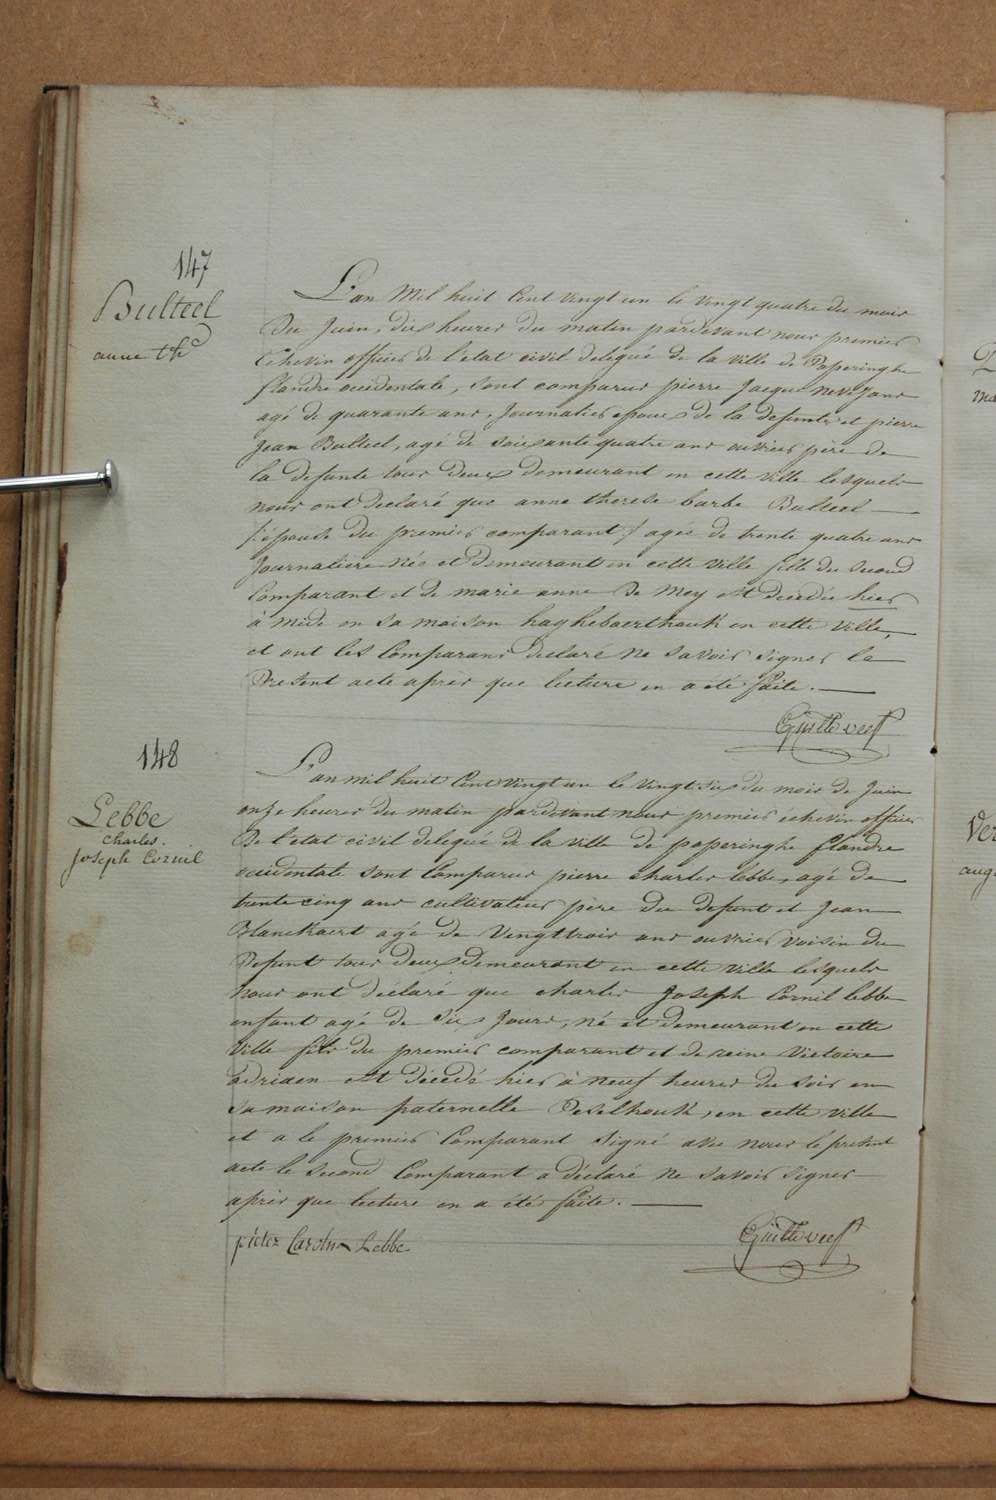 147
Bulteel
anne thse
L'an Mil huit Cent vingt un le vingt quatre du mois
du Juin, dix heures du matin pardevant nous premier
Echevin officier de l'état civil delegué de la ville de Poperinghe
flandre occidentale, sont comparus pierre Jacque
agé de quarante ans, Journalier epoux de la defunte et pierre
Jean Bulteel, agé de soixante quatre ans ouvrier père de
la defunte tous deux demeurant en cette ville lesquels
nous ont declaré que anne therese barbe Bulteel
/: épouse du premier comparant :/ agée de trente quatre ans
Journaliere Née et demeurant en cette ville fille du second
Comparant et de marie anne De Mey est decedée hier
à midi en sa maison haghebaerthouk en cette ville,
et ont les Comparans declaré ne savoir signer le
Present acte après que lecture en a été faite.
148
Lebbe
Charles
Joseph Cornil
L'an mil huit Cent vingt un le vingt six du mois de Juin
onze heures du matin pardevant nous premier échevin officier
De l'etat civil delegué de la ville de poperinghe flandre
occidentale sont Comparus pierre charles lebbe, agé de
trente cinq ans cultivateur père du defunt et Jean
Blanckaert agé de Vingt trois ans ouvrier voisin du
Defunt tous deux demeurant en cette ville lesquels
nous ont déclaré que charles Joseph Cornil lebbe
enfant agé de six Jours, né et demeurant en cette
ville fils du premier comparant et de reine Victoire
adriaen est décédé hier à neuf heures du soir en
sa maison paternelle Deselhouk, en cette ville
et a le premier Comparant signé avec nous le présent
acte le second Comparant a déclaré ne savoir signer
après que lecture en a été faite.
pieter Carolus Lebbe